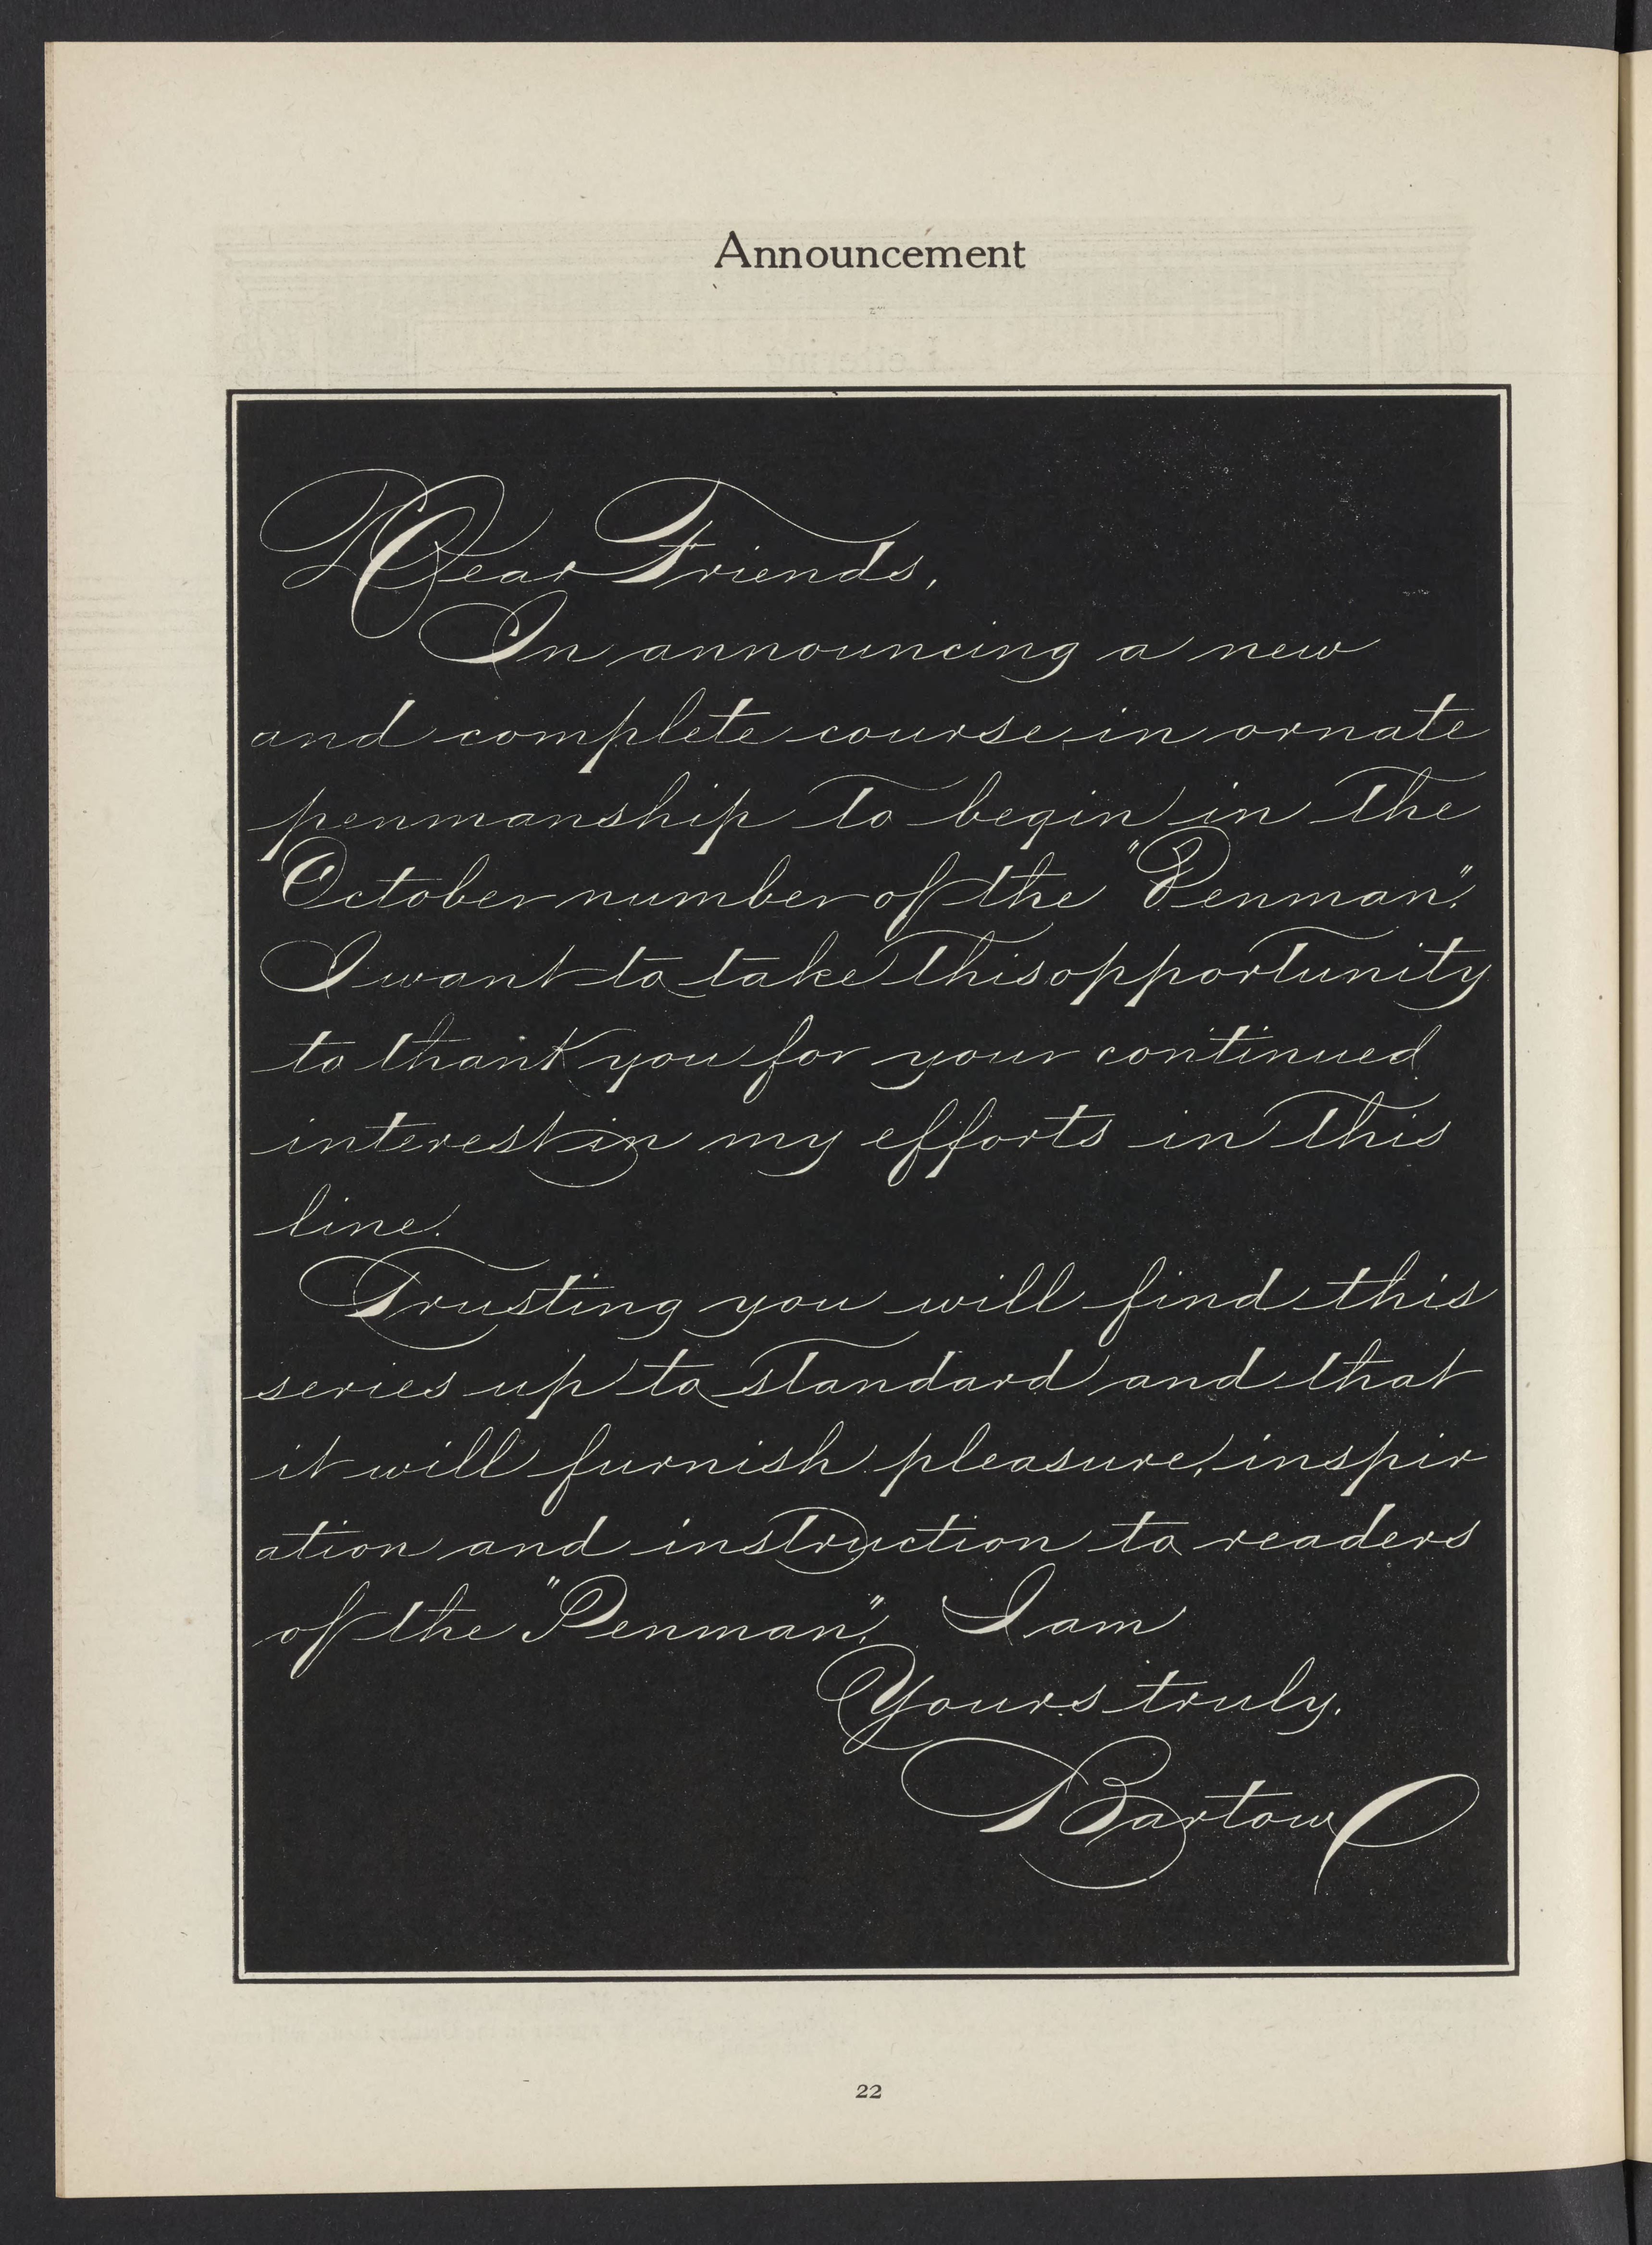 Announcement
Dear Friends,
In announcing a new
and complete course in ornate
penmanship to begin in the
October number of the "Penman",
I want to take this opportunity
to thank you for your continued
interest in my efforts in this
line.
Trusting you will find this
series up to standard and that
it will furnish pleasure, inspir
ation and instruction to readers
of the "Penman", I am
Yours truly,
Bartow
22